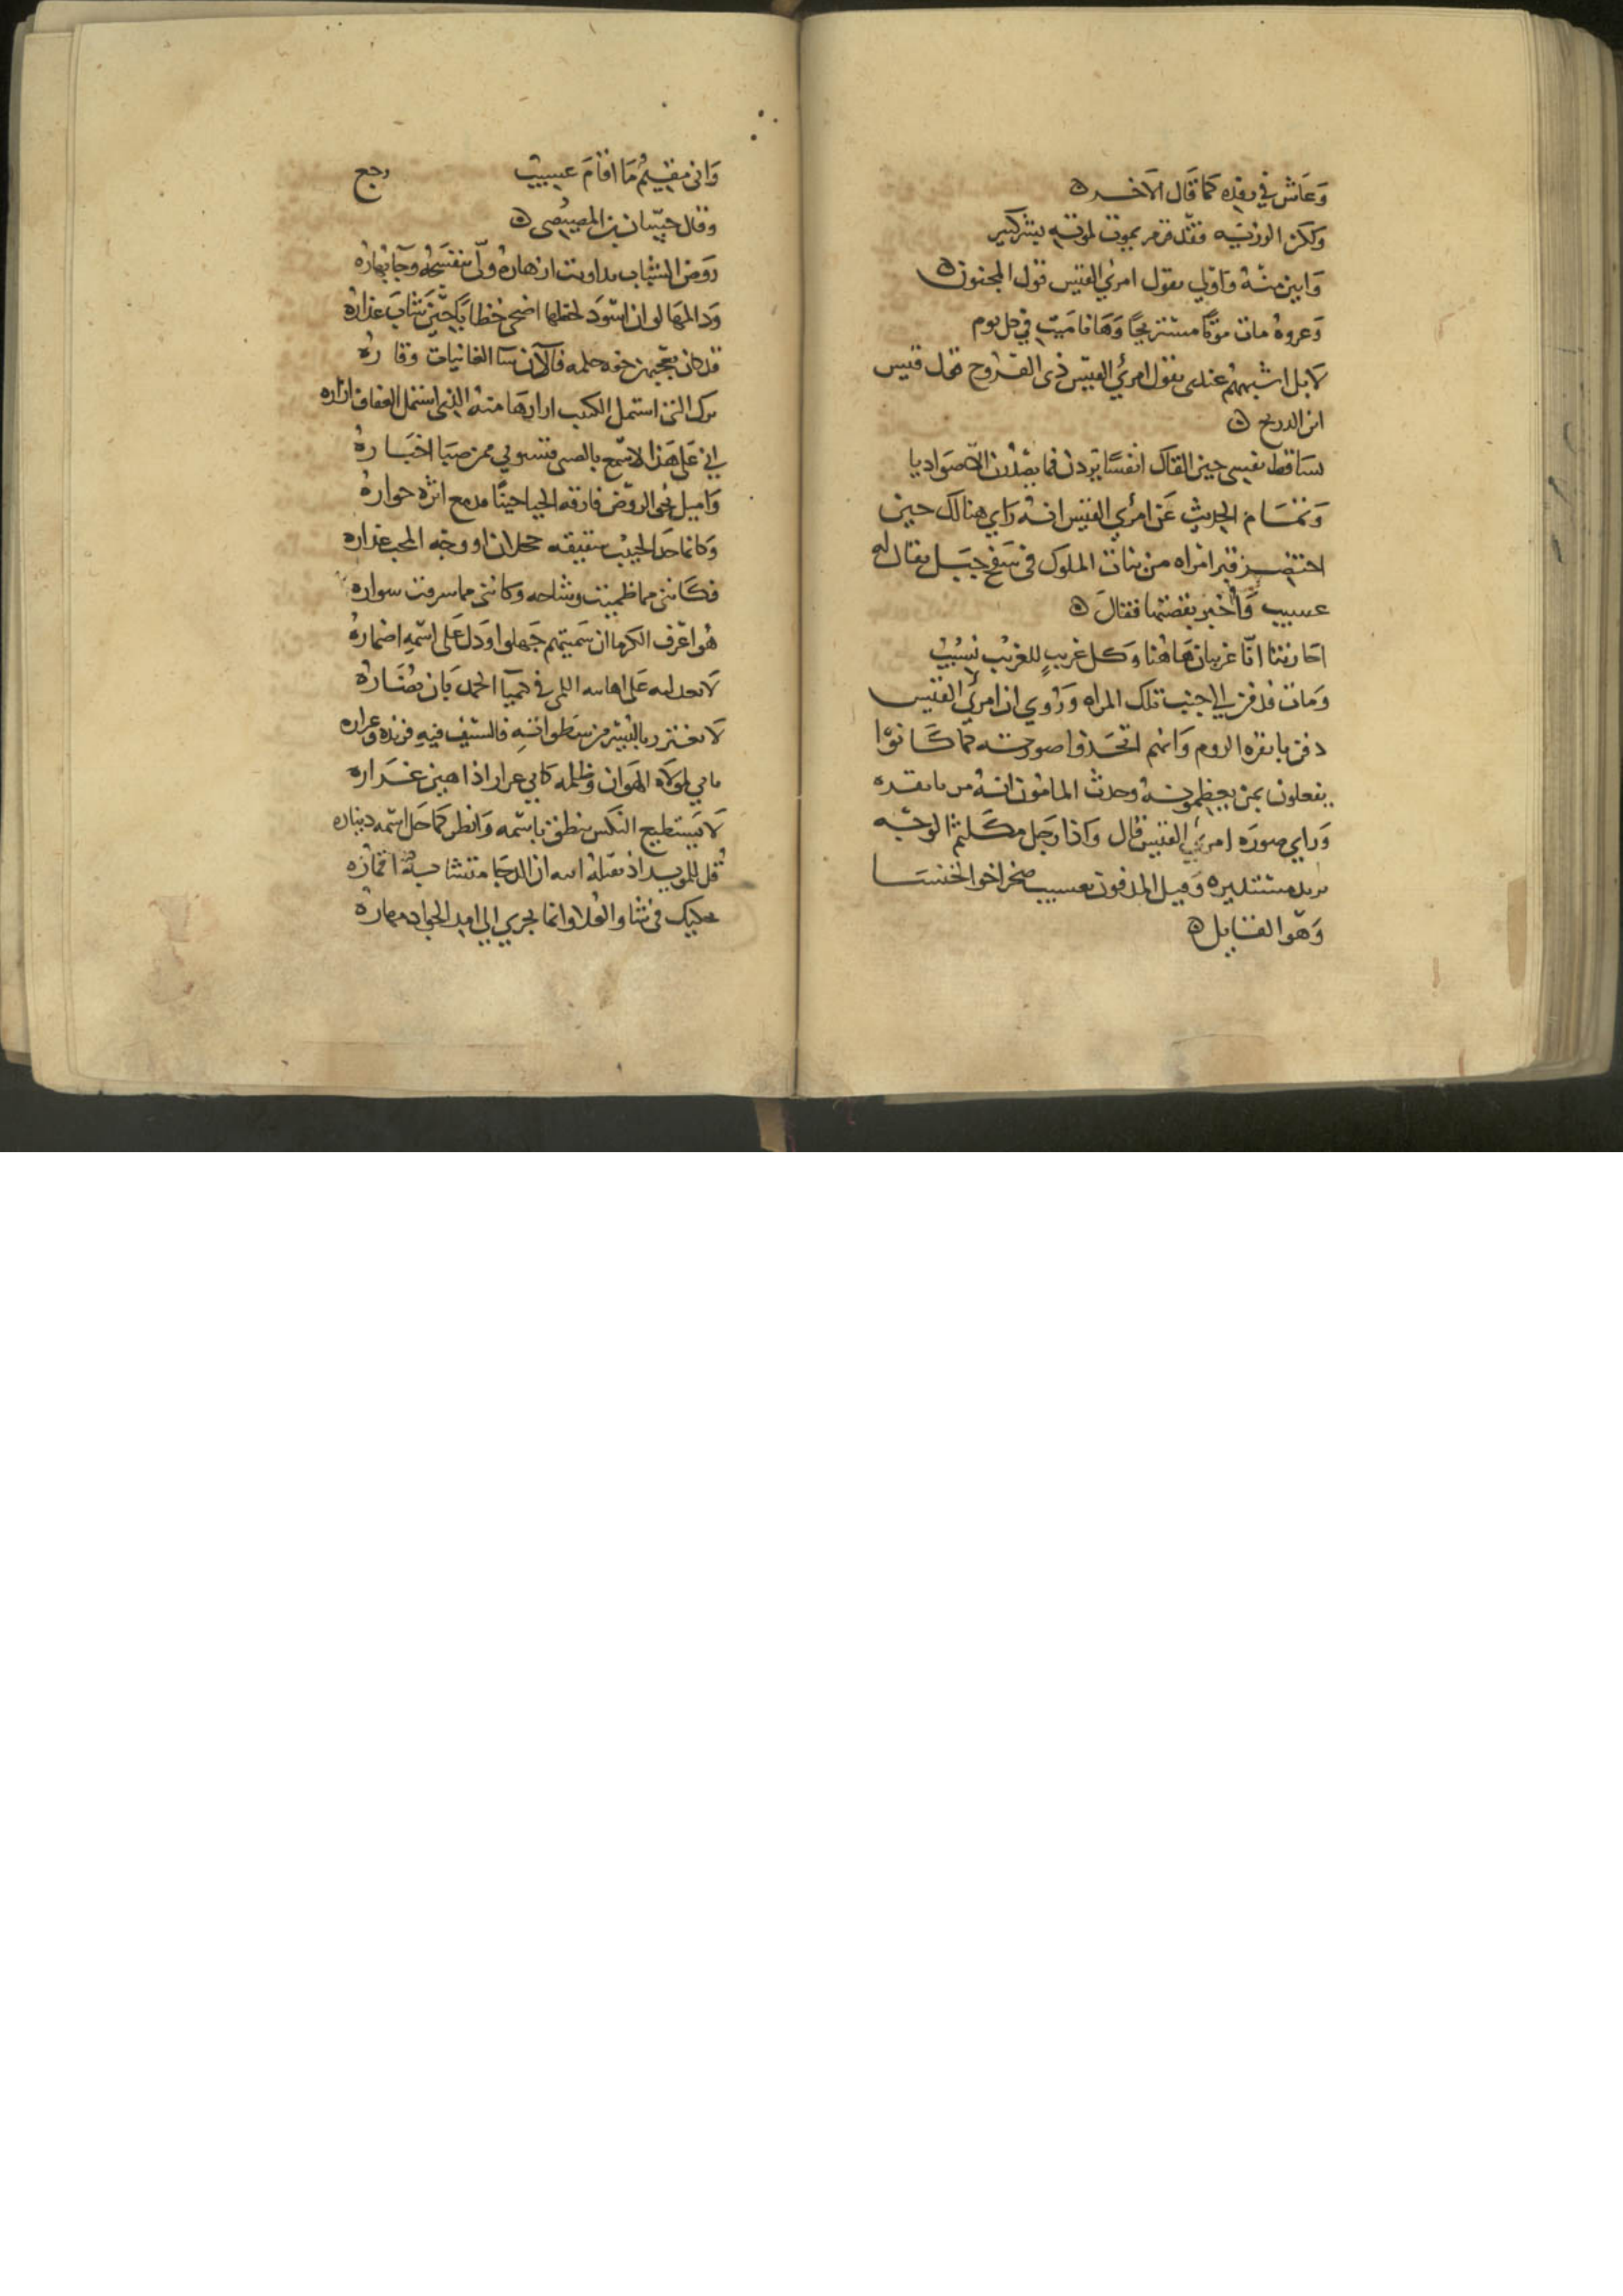 وَعَاش في بعده كما قَال الآخر ه
ولكن الرزيه فقد قرم يموت لموته بشر كثير
وَابين منه وَاولي بقول امرئ القيس قول المجنون ه
وَعروهُ مات موتًا مستريحًا وَهَا انا ميّت في كل يوم
لا بل اشبههم عندى بقول امرئ القيس ذى القروح قول قيس
ابن الدريح ه
تساقط نفسي حين القاك انفسًا يردن فما يصدرن الا صواديا
وَتمَام الحديث عَن امرئ القيس انه رَاي هنالك حين
احتضر قبر امراه من بنات الملوك في سَفح جبَل يقال له
عسيب وَأخبر بقصتها فقالَ ه
اجارتنا انّا غريبان هَاهُنا وَكل غريبٍ للغريب نسيبُ
وَمات فدفن الي جنب تلك المراه وَروي ان امرئ القيس
دفن بانقره الروم وَانهم اتخَذوا صورته كما كَانوا
يفعلون بمن يعظمونهُ وحدث المامون انهُ مر بانقره
وَراي صورَه امرئ القيس قال وَاذا رَجل مكلثم الوجه
يريد مستديره وَقيل المدفون بعسيب صخر اخو الخنسَا
وَهوَ القايل ه
وَاني مقيمُ مَا اقامَ عسيب رجع
وقال حسّان بن المصيصى ه
رَوض الشباب ازهارهُ ولّى بنفسجهُ وجَآ بهارهُ
وَد المهَا لو ان اسوَد لحظها اضحى خطابًا حين شابَ عذارهُ
قد كان حلمه فالآن سآ الغانيات وقارُه
ازارهَا منه الذى اشتمل العفاف ازاره
اني عَلي هَذا لاسمع بالصبى من صبَا اخبَارهُ
وَاميل نحو الروض فارقه الحيا حينًا اثره حوارهُ
وَكانما خد الحبيب شقيقه خجلان او وجه المحب عذاره
فكَانني مما ظميت وشاحه وكانني مما سرقت سواره
هُو اعرف الكرما ان سَميتهم جَهلوا وَدل عَلى اسمه اضمارهُ
لا في محيَا الحمد بَان نضَارهُ
لا تغترر بالبشر من سَطواته فالسّيف فيه فرنده وغراره
يابي لمولاه الهَوان وَظلمه كابي عرار اذا اهين عَراره
لا يَستطيع النكس ينطق باسمه وَانظر كما حَل اسمه ديناره
قُل ان الدجا متشابهٌ اقمارُه
في شاو العُلا وانما يجري الي امد الجياد مهَارهُ